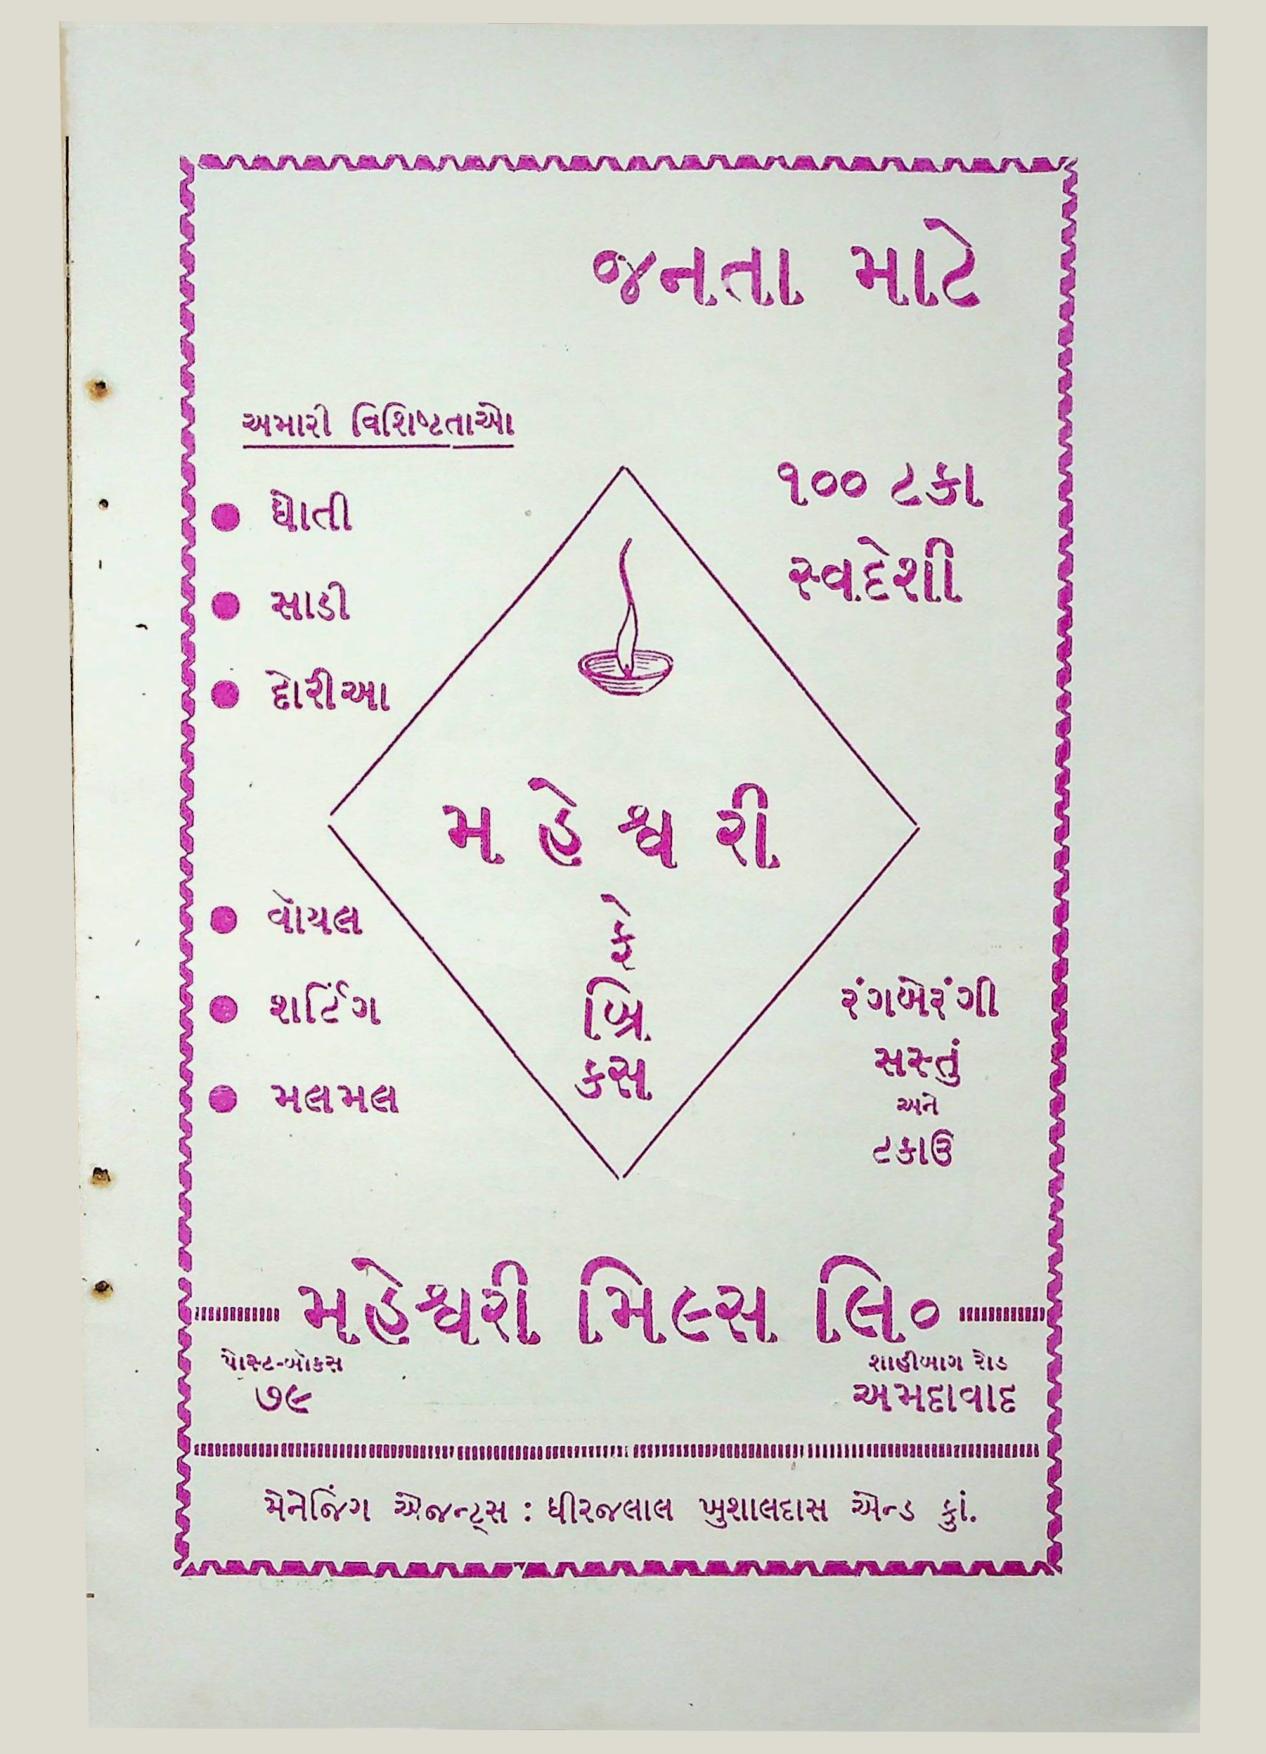 જનતા માટે
અમારી વિશિષ્ટતાઓ
ધોતી
સાડી
દોરીઆ
૧૦૦ ટકા
સ્વદેશી
મહેશ્વરી
ફે
બ્રિ
કસ
વોયલ
શર્ટિંગ
મલમલ
રંગબેરંગી
સસ્તું
અને
ટકાઉ
મહેશ્વરી મિલ્સ લિ૦
પોસ્ટ-બોકસ
૭૯
શાહીબાગ રોડ
અમદાવાદ
મેનેજિંગ એજન્ટ્સ : ધીરજલાલ ખુશાલદાસ એન્ડ કું.